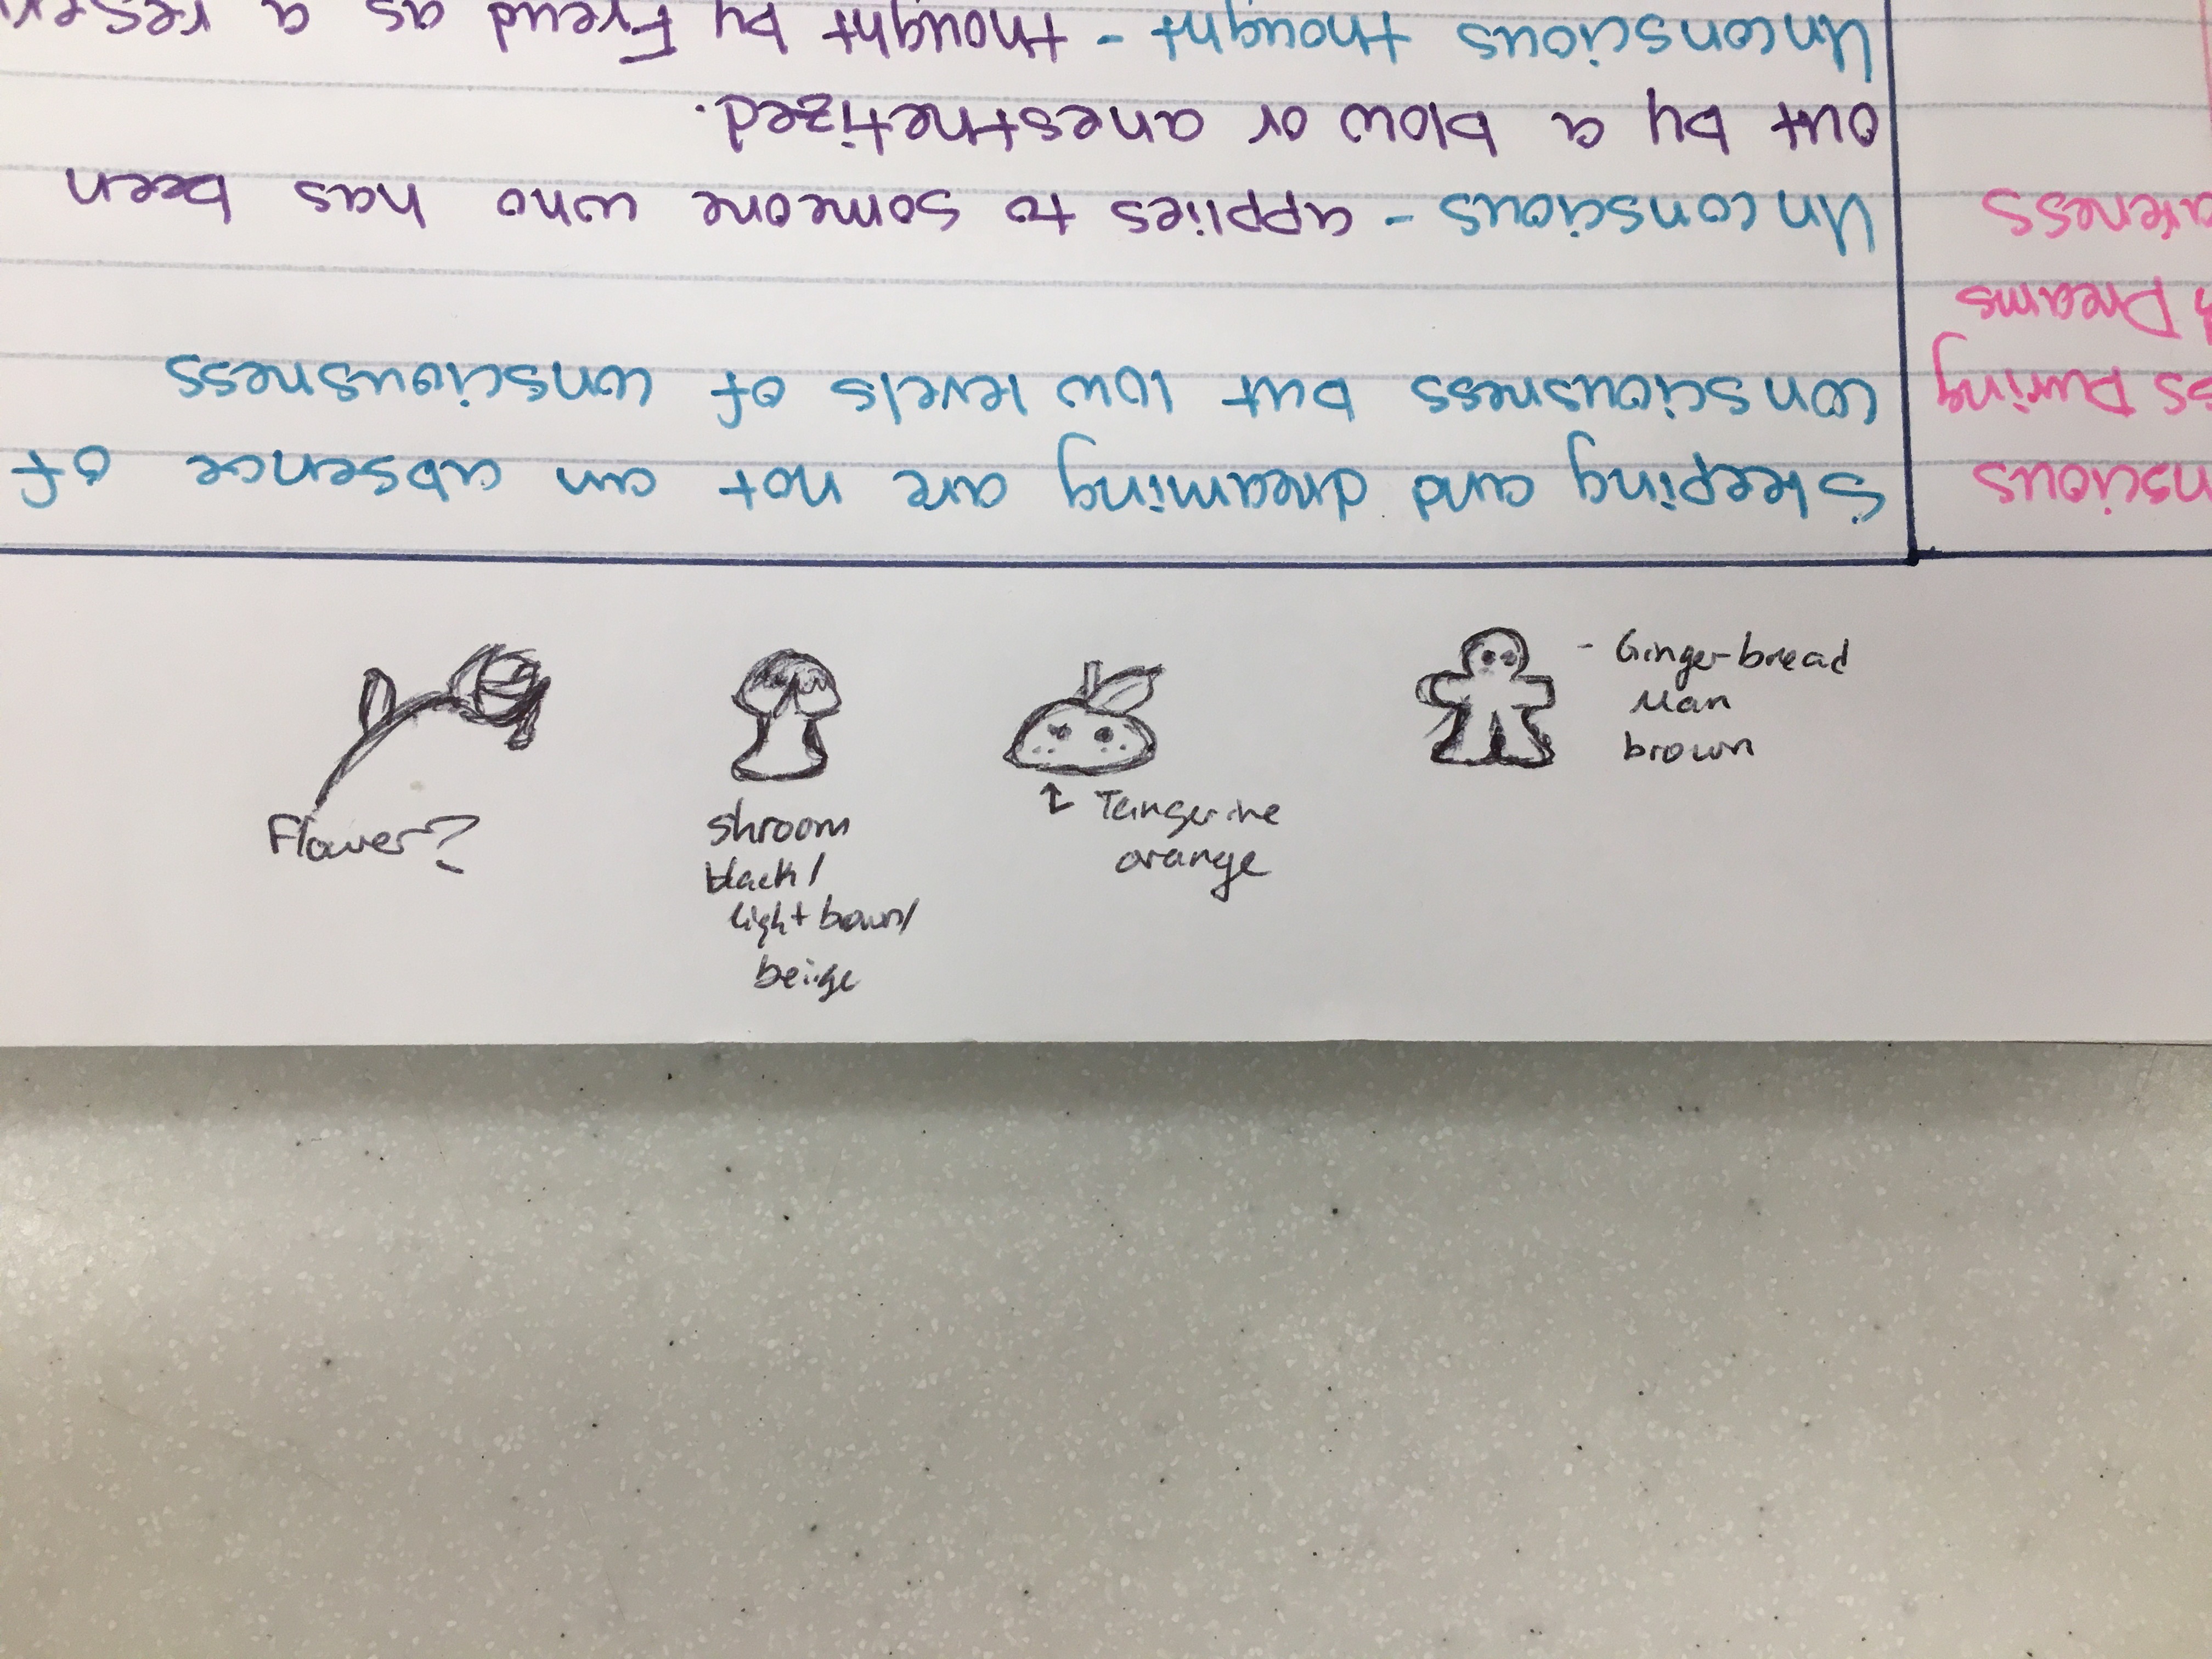 Flower?
shroom
black/
light brown/
beige
Tangerine
orange
- Ginger-bread
Man
brown
nscious
ss During
Dreams
areness
Sleeping and dreaming are not an absence of
consciousness but low levels of consciousness
Unconscious - applies to someone who has been
out by a blow or anesthetized.
Unconscious thought - thought by Freud as a reser